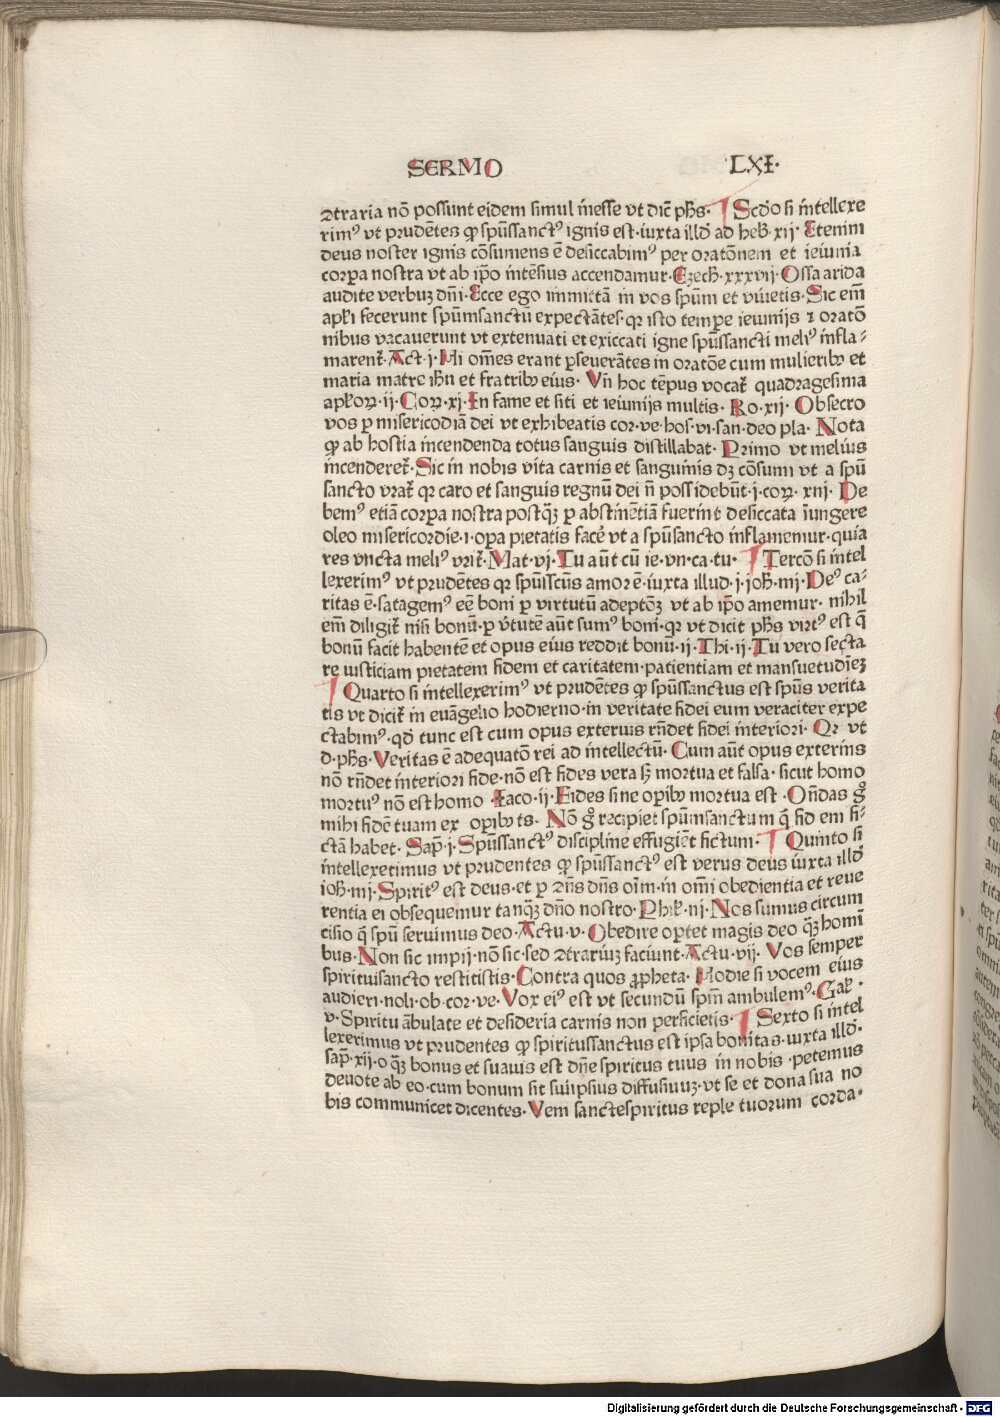 SERMO LXI·
ꝯtraria nō possunt eidem simul inesse vt dic̄ ph̄s· ¶ Scd̄o si intellexe
rimꝰ vt prudētes ꝙ spūssanctꝰ ignis est·iuxta illđ ad heƀ·xij· Etenim
deus noster ignis cōsumens ē desiccabimꝰ per oratōnem et ieiunia
corꝑa nostra vt ab ip̄o intēsius accendamur·Ezech̄·xxxvij·Ossa arida
audite verbuꝫ dn̄i·Ecce ego immittā in vos spūm et viuetis·Sic em̄
apl̄i fecerunt spūmsanctū expectātes·qꝛ isto tempore ieiunijs ⁊ oratō
nibus vacauerunt vt extenuati et exiccati igne spūssancti meliꝰ infla⸗
marent᷑·Act·j·Hi om̄es erant ꝑseuerātes in oratōe cum mulieribꝫ et
maria matre ih̄u et fratribꝫ eius· Vn̄ hoc tēpus vocat᷑ quadragesima
apl̄oꝝ·ij·Coꝝ·xj·In fame et siti et ieiunijs multis·Ro·xij·Obsecro
vos ꝑ misericodiā dei vt exhibeatis cor·ve·hos·vi·san·deo pla·Nota
ꝙ ab hostia incendenda totus sanguis distillabat·Primo vt melius
incenderet᷑·Sic in nobis vita carnis et sanguinis dꝫ cōsumi vt a spū
sancto vrat᷑ qꝛ caro et sanguis regnū dei n̄ possidebūt·j·coꝝ·xnj·De
bemꝰ etiā corꝑa nostra postq̄ꝫ ꝑ abstinētiā fuerint desiccata iungere
oleo misericordie·i·oꝑa pietatis facē vt a spūsancto inflamemur·quia
res vncta meliꝰ vrit᷑·Mat·vj·Tu aūt cū ie·vn·ca·tu· ¶ Tercō si intel
lexerimꝰ vt prudētes qꝛ spūiscūs amor ē·iuxta illud·j·joh̄·mj·Deꝰ ca⸗
ritas ē·satagemꝰ eē boni ꝑ virtutū adeptōꝫ vt ab ip̄o amemur· nihil
em̄ diligit᷑ nisi bonū·ꝑ v̄tutē aūt sumꝰ boni·qꝛ vt dicit ph̄s virtꝰ est q̄
bonū facit habentē et opus eius reddit bonū·ij·Thi·ij·Tu vero secta
re iusticiam pietatem fidem et caritatem·patientiam et mansuetudīeꝫ
¶ Quarto si intellexerimꝰ vt prudētes ꝙ spūssanctus est spūs verita
tis vt dicit᷑ in euāgelio hodierno·in veritate fidei eum veraciter expe
ctabimꝰ·qđ tunc est cum opus exterius rn̄det fidei interiori· Qꝛ vt
d·ph̄s·Veritas ē adequatōn rei ad intellectū·Cum aūt opus exterins
nō rn̄det interiori fide·nō est fides vera sꝫ mortua et falsa·sicut homo
mortuꝰ nō est homo Iaco·ij·Fides sine oꝑibꝫ mortua est·On̄das g̊
mihi fidē tuam ex oꝑibꝫ ts·Nō g̊ recipiet spūmsanctum q̄ fid em fi⸗
ctā habet·Sap̄·j·Spūssanctꝰ discipline effugiēt fictum· ¶ Quinto si
intellexerimus vt prudentes ꝙ spūssanctꝰ est verus deus iuxta illđ
ioh̄·mj·Spiritꝰ est deus·et ꝑ ꝯn̄s dn̄s oīm·in om̄i obedientia et reue
rentia ei obsequemur tanq̄ꝫ dn̄o nostro·Phil̄·nj·Nos sumus circum
cisio q̄ spū seruimus deo·Actu·v·Obedire oꝑtet magis deo q̄ꝫ homī
bus·Non sic impij·nō sic·sed ꝯtrariuꝫ faciunt·Actu·vij·Vos semper
spirituisancto restitistis·Contra quos ꝓpheta·Hodie si vocem eius
audieri·noli·ob·cor·ve·Vox eiꝰ est vt secundū spm̄ ambulemꝰ·Gal̄·
v·Spiritu ābulate et desideria carnis non perficietis· ¶ Sexto si intel
lexerimus vt prudentes ꝙ spiritussanctus est ipsa bonitas·iuxta illđ·
sap̄·xij·o q̄ꝫ bonus et suauis est dn̄e spiritus tuus in nobis·petemus
deuote ab eo·cum bonum sit suiipsius diffusiuuꝫ·vt se et dona sua no
bis communicet dicentes·Veni sanctespiritus reple tuorum corda·
Digitalisierung gefördert durch die Deutsche Forschungsgemeinschaft - DFG